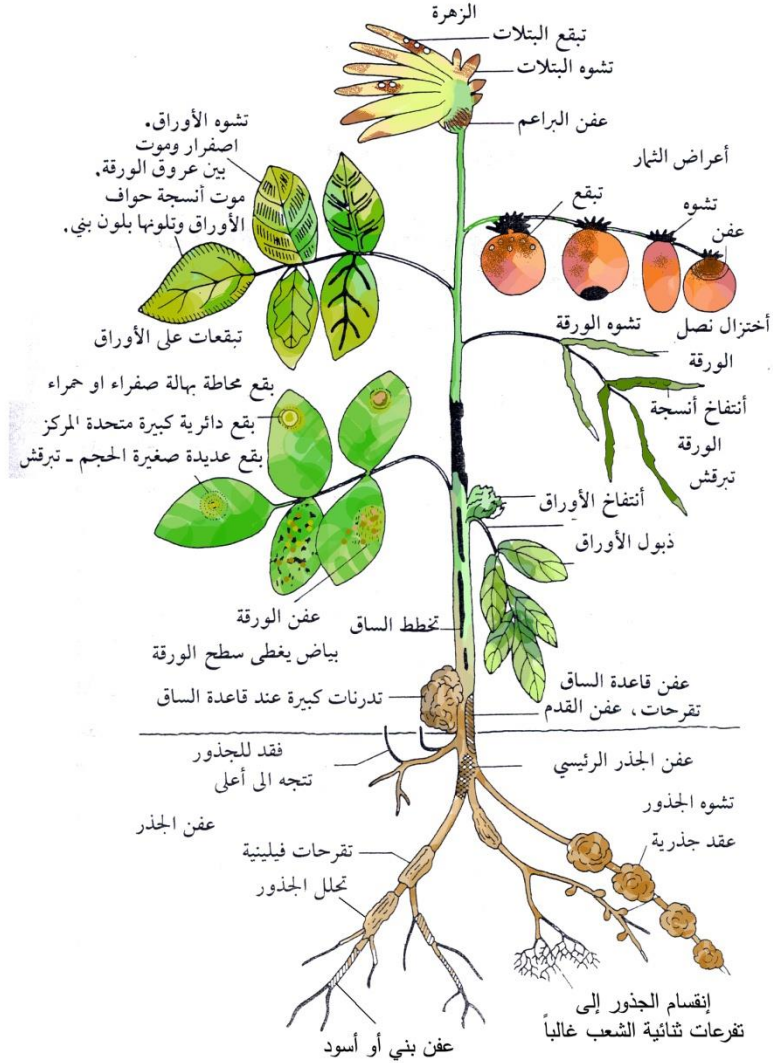 الزهرة
تبقع البتلات
تشوه البتلات
عفن البراعم
تشوه الأوراق.
اصفرار وموت
بين عروق الورقة,
موت أنسجة حواف
الأوراق وتلونها بلون بني,
تبقعات على الأوراق
أعراض الثمار
تبقع
تشوه
عفن
تشوه الورقة
أختزال نصل
الورقة
أنتفاخ أنسجة
الورقة
تبرقش
بقع محاطة بهالة صفراء او حمراء
بقع دائرية كبيرة متحدة المركز
بقع عديدة صغيرة الحجم ـ تبرقش
أنتفاخ الأوراق
ذبول الأوراق
عفن الورقة
بياض يغطى سطح الورقة
تخطط الساق
تدرنات كبيرة عند قاعدة الساق
عفن قاعدة الساق
تقرحات، عفن القدم
فقد للجذور
تتجه الى أعلى
عفن الجذر الرئيسي
تشوه الجذور
عقد جذرية
عفن الجذر
تقرحات فيلينية
تحلل الجذور
إنقسام الجذور إلى
تفرعات ثنائية الشعب غالباً
عفن بني أو أسود